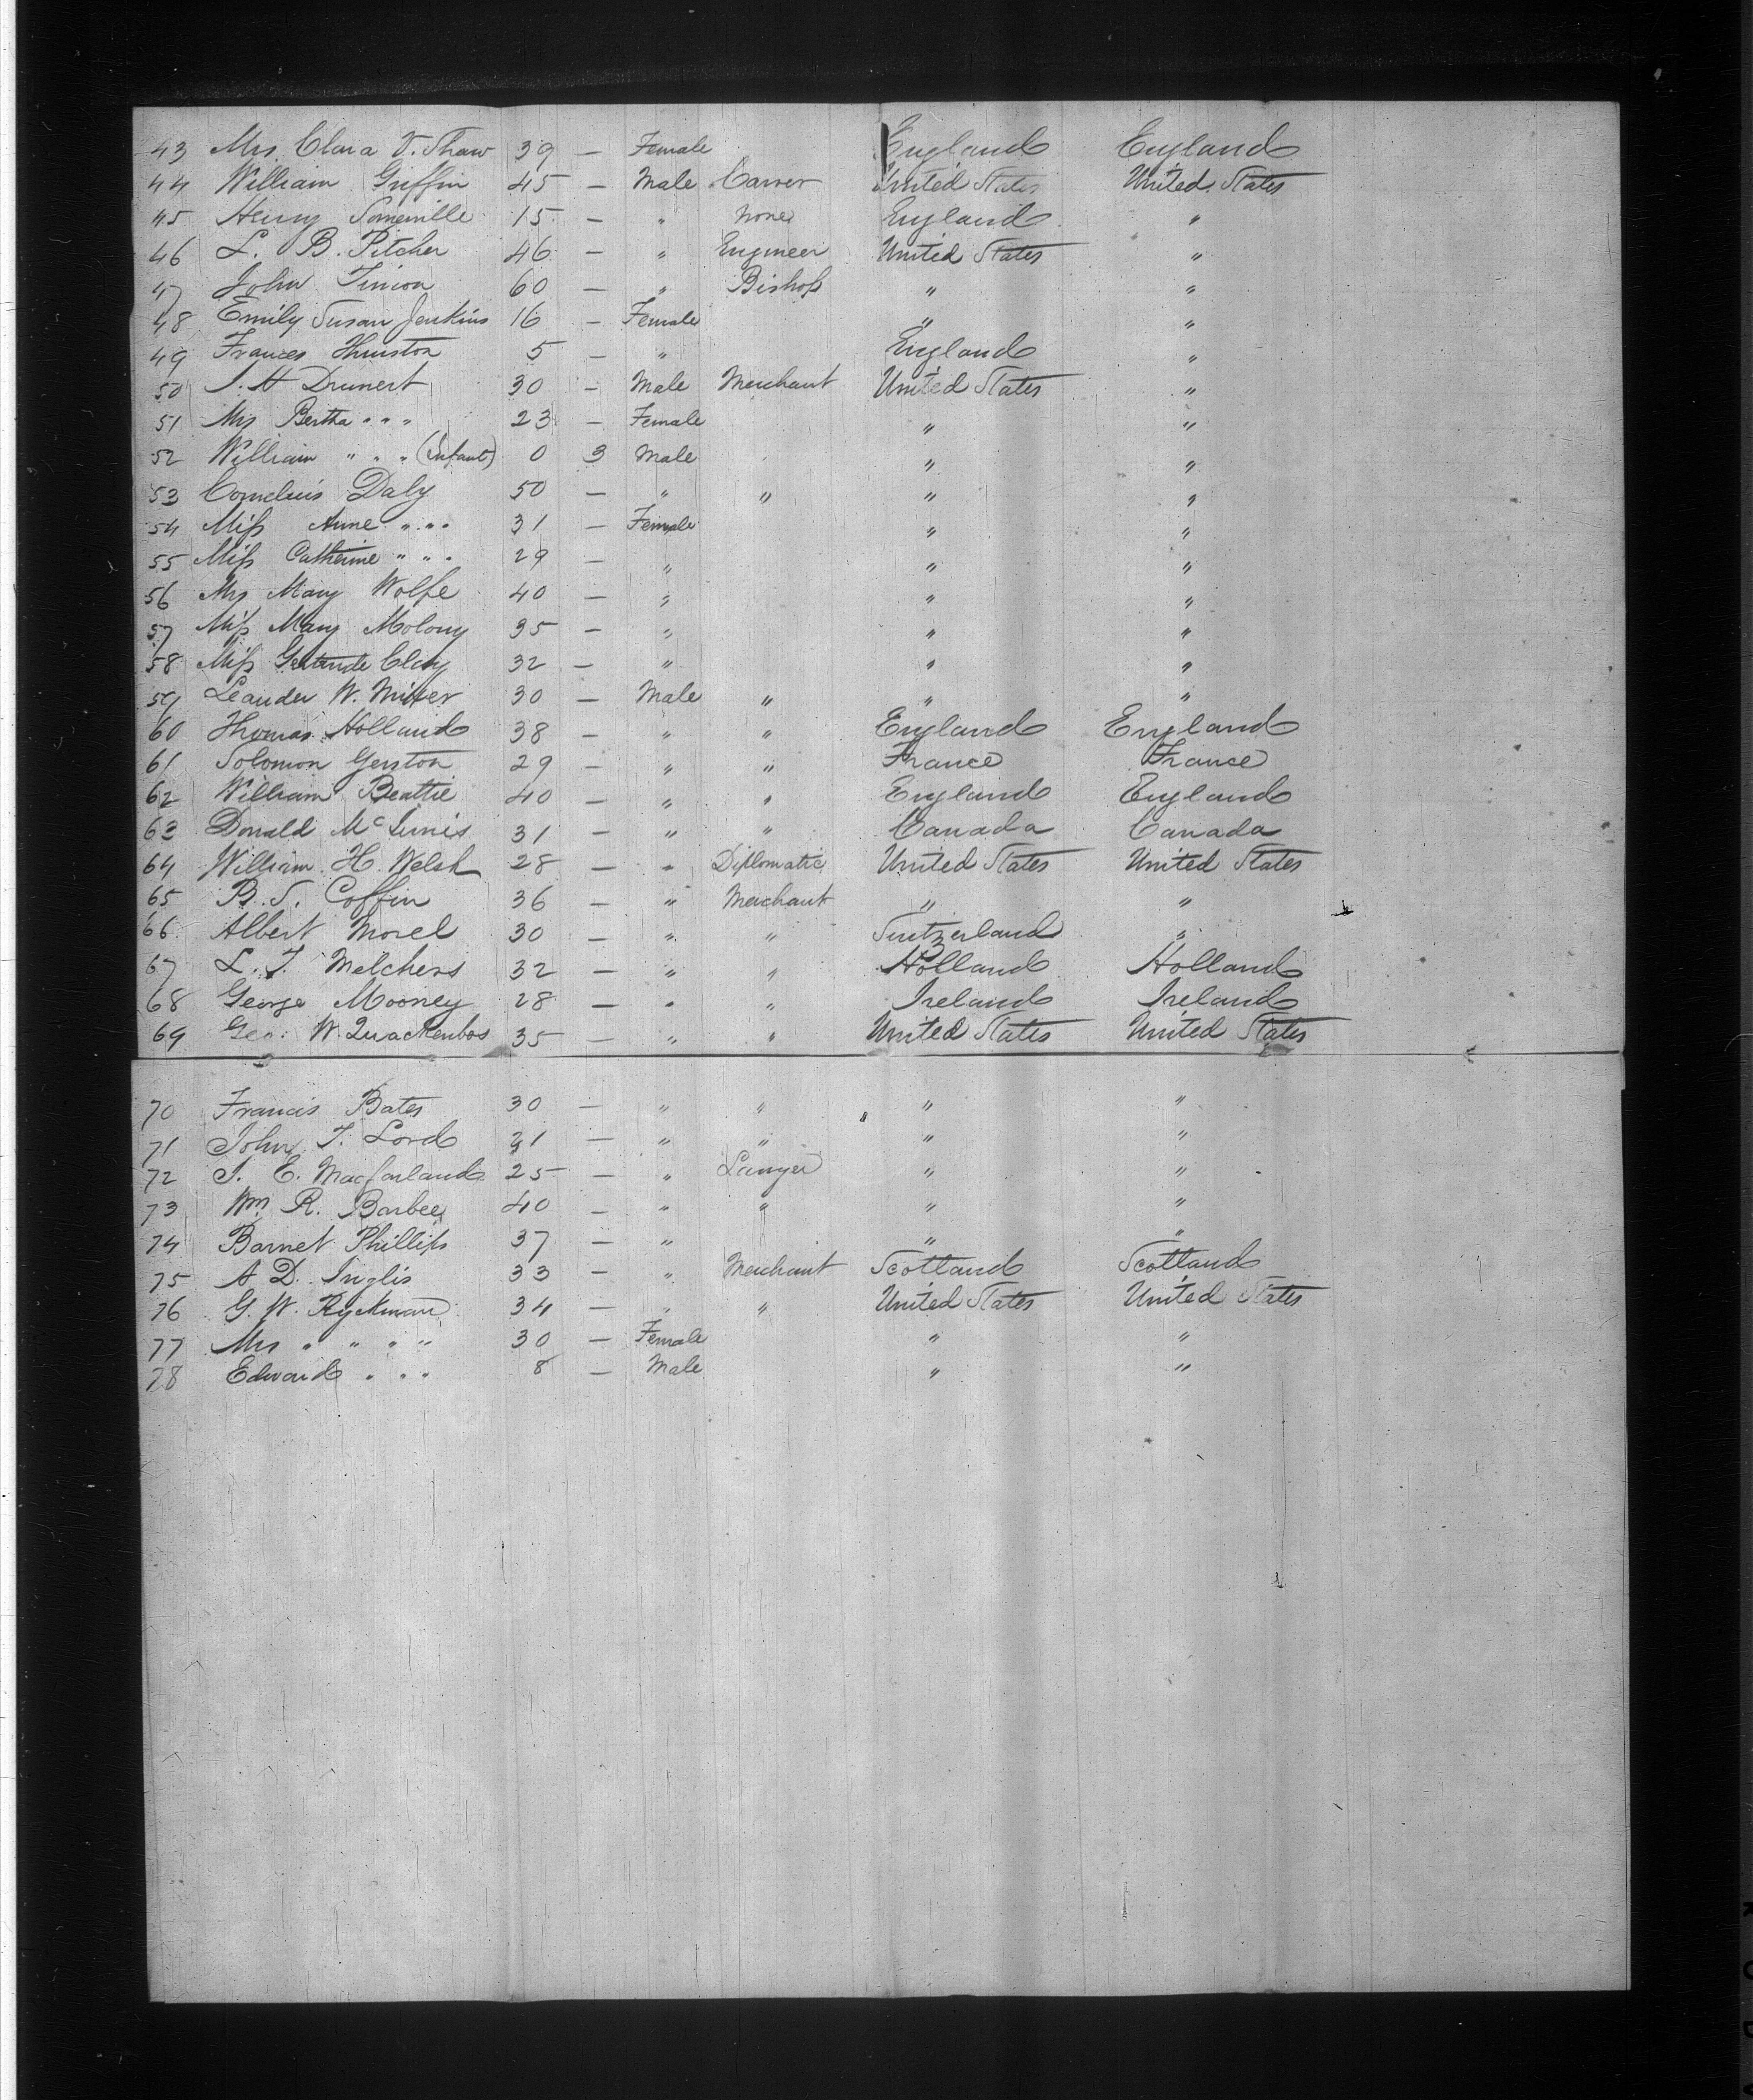 43 Mrs. Clara V. Shaw 39 — Female England England
44 William Griffin 45 — Male Carver United States United States
45 Henry Somerville 15 — " None England "
46 L. B. Pitcher 46 — " Engineer United States "
47 John Timon 60 — " Bishop " "
48 Emily Susan Jenkins 16 — Female " "
49 Frances Thurston 5 — " England "
50 J. H Drunert 30 — Male Merchant United States "
51 Mrs Bertha " " " 23 — Female " "
52 William " " " (Infant) 0 3 Male " "
53 Cornelius Daly 50 — " " " "
54 Miss Anne " " " 31 — Female " "
55 Miss Catherine " " " 29 — " " "
56 Mrs Mary Wolfe 40 — " " "
57 Miss Mary Molony 35 — " " "
58 Miss Gertrude Clay 32 — " " "
59 Leander W. Miller 30 — Male " " "
60 Thomas Holland 38 — " " England England
61 Solomon Gerston 29 — " " France France
62 William Beattie 40 — " " England England
63 Donald McInnis 31 — " " Canada Canada
64 William H. Welsh 28 — " Diplomatic United States United States
65 B. S. Coffin 36 — " Merchant " "
66 Albert Morel 30 — " " Switzerland "
67 L. T. Melchers 32 — " " Holland Holland
68 George Mooney 28 — " " Ireland Ireland
69 Geo: W. Quackenbos 35 — " " United States United States
70 Francis Bates 30 — " " " "
71 John T. Lord 31 — " " " "
72 J. E. Macfarland 25 — " Lawyer " "
73 Wm R. Barbee 40 — " " " "
74 Barnet Phillips 37 — " " "
75 A D. Inglis 33 — " Merchant Scotland Scotland
76 G. W. Ryckman 34 — " " United States United States
77 Mrs " " " " 30 — Female " "
78 Edward " " " 8 — Male " "